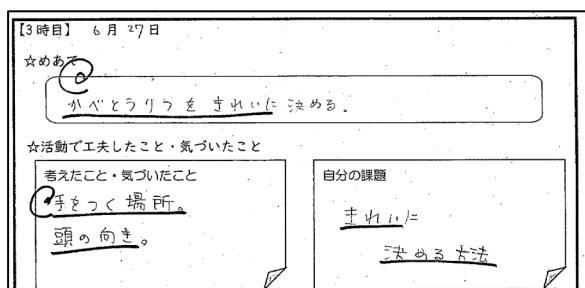 【3時目】 6月27日
☆めあて
かべとうりつをきれいに決める.
☆活動で工夫したこと・気づいたこと
考えたこと・気づいたこと
手をつく場所。
頭の向き。
自分の課題
きれいに
決める方法